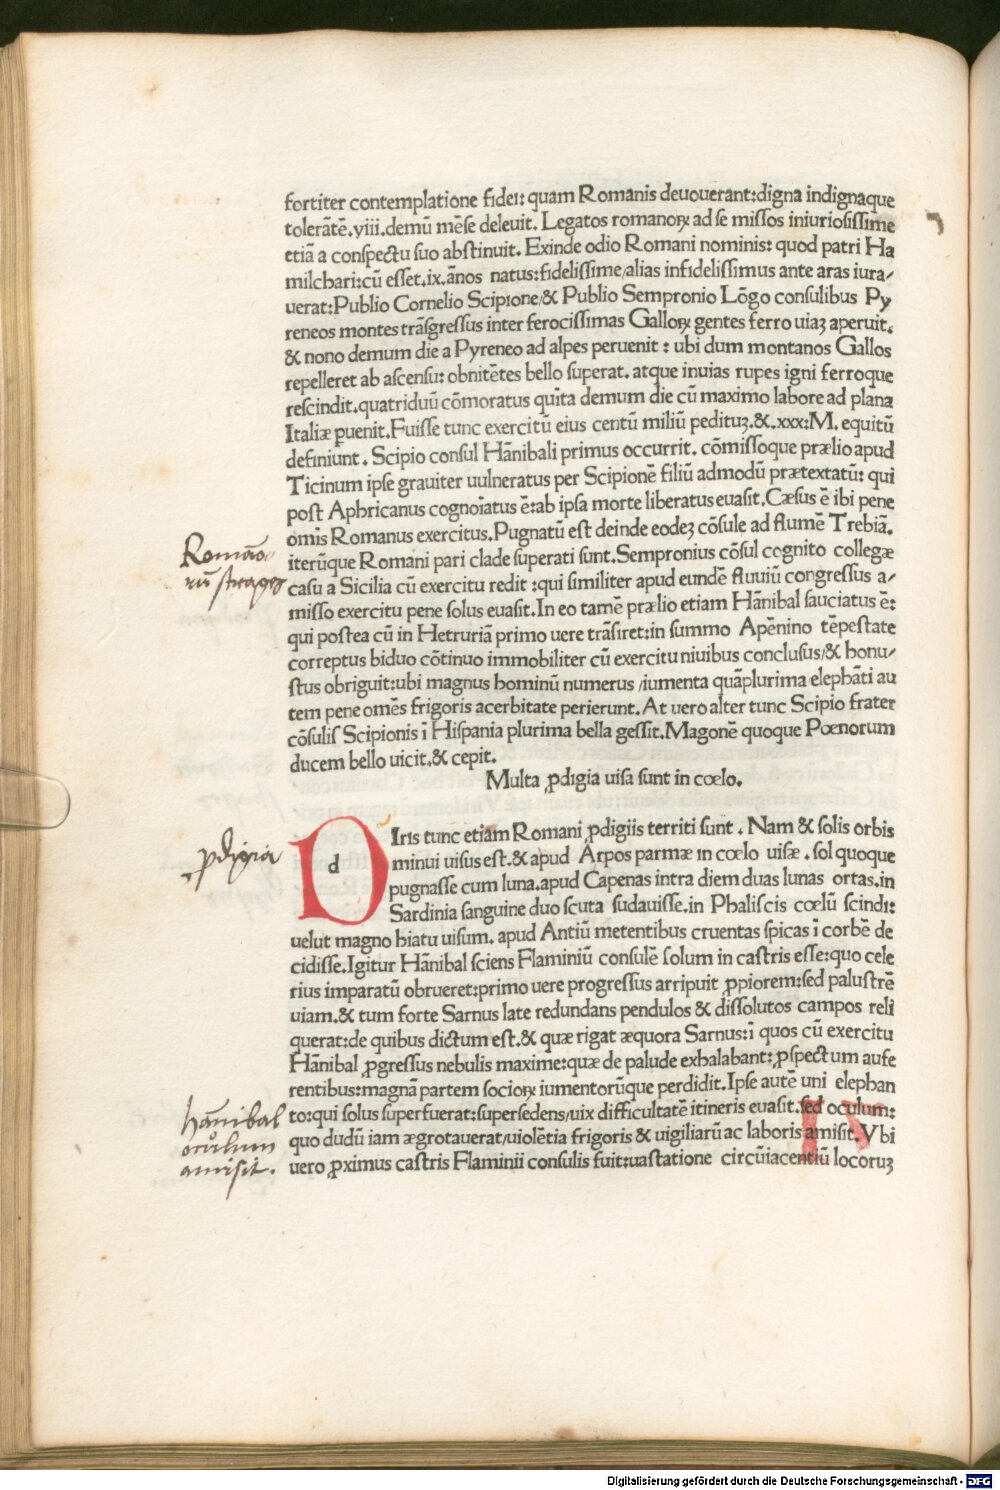 fortiter contemplatione fidei: quam Romanis deuouerant:digna indignaque
tolerātē.viii.demū mēse deleuit. Legatos romanoꝝ ad se missos iniuriosissime
etiā a conspectu suo abstinuit. Exinde odio Romani nominis: quod patri Ha
milchari:cū esset.ix.ānos natus:fidelissime/alias infidelissimus ante aras iura/
uerat:Publio Cornelio Scipione/& Publio Sempronio Lōgo consulibus Py
reneos montes trāsgressus inter ferocissimas Galloꝝ gentes ferro uiaꝫ aperuit.
& nono demum die a Pyreneo ad alpes peruenit : ubi dum montanos Gallos
repelleret ab ascensu: obnitētes bello superat. atque inuias rupes igni ferroque
rescindit.quatriduū cōmoratus quīta demum die cū maximo labore ad plana
Italiæ puenit.Fuisse tunc exercitū eius centū miliū peditūꝫ.&.xxx:M. equitū
definiunt. Scipio consul Hānibali primus occurrit. cōmissoque prælio apud
Ticinum ipse grauiter uulneratus per Scipionē filiū admodū prætextatū: qui
post Aphricanus cognoīatus ē:ab ipsa morte liberatus euasit.Cæsus ē ibi pene
omīs Romanus exercitus.Pugnatū est deinde eodeꝫ cōsule ad flumē Trebiā.
iterūque Romani pari clade superati sunt.Sempronius cōsul cognito collegæ
casu a Sicilia cū exercitu redit :qui similiter apud eundē fluuiū congressus a/
misso exercitu pene solus euasit.In eo tamē prælio etiam Hānibal sauciatus ē:
qui postea cū in Hetruriā primo uere trāsiret:in summo Apēnino tēpestate
correptus biduo cōtinuo immobiliter cū exercitu niuibus conclusus/& honu/
stus obriguit:ubi magnus hominū numerus /iumenta quāplurima elephāti au
tem pene omēs frigoris acerbitate perierunt. At uero alter tunc Scipio frater
cōsulis Scipionis ī Hispania plurima bella gessit.Magonē quoque Pœnorum
ducem bello uicit.& cepit.
Multa ꝓdigia uisa sunt in cœlo.
d
DIris tunc etiam Romani ꝓdigiis territi sunt . Nam & solis orbis
minui uisus est.& apud Arpos parmæ in cœlo uisæ . sol quoque
pugnasse cum luna.apud Capenas intra diem duas lunas ortas.in
Sardinia sanguine duo scuta sudauisse.in Phaliscis cœlū scindi:
uelut magno hiatu uisum. apud Antiū metentibus cruentas spicas ī corbē de
cidisse.Igitur Hānibal sciens Flaminiū consulē solum in castris esse:quo cele
rius imparatū obrueret:primo uere progressus arripuit ꝓpiorem:sed palustrē
uiam.& tum forte Sarnus late redundans pendulos & dissolutos campos reli
querat:de quibus dictum est.& quæ rigat æquora Sarnus:ī quos cū exercitu
Hānibal ꝓgressus nebulis maxime:quæ de palude exhalabant:ꝓspectum aufe
rentibus:magnā partem socioꝝ iumentorūque perdidit.Ipse autē uni elephan
to:qui solus superfuerat:supersedens/uix difficultatē itineris euasit.sed oculum:
quo dudū iam ægrotauerat/uiolētia frigoris & uigiliarū ac laboris amisit.Vbi
uero ꝓximus castris Flaminii consulis fuit:uastatione circūiacentiū locoruꝫ
Romāo
rū strages
ꝓdigia
hānibal
oculum
amisit.
Digitalisierung gefördert durch die Deutsche Forschungsgemeinschaft - DFG